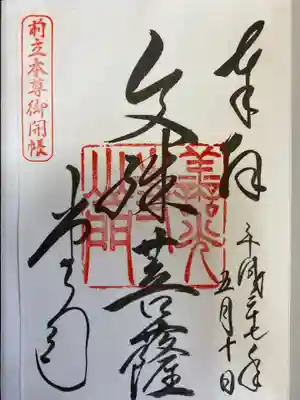 奉拝
平成二十七年
五月十日
文殊菩薩
前立本尊御開帳